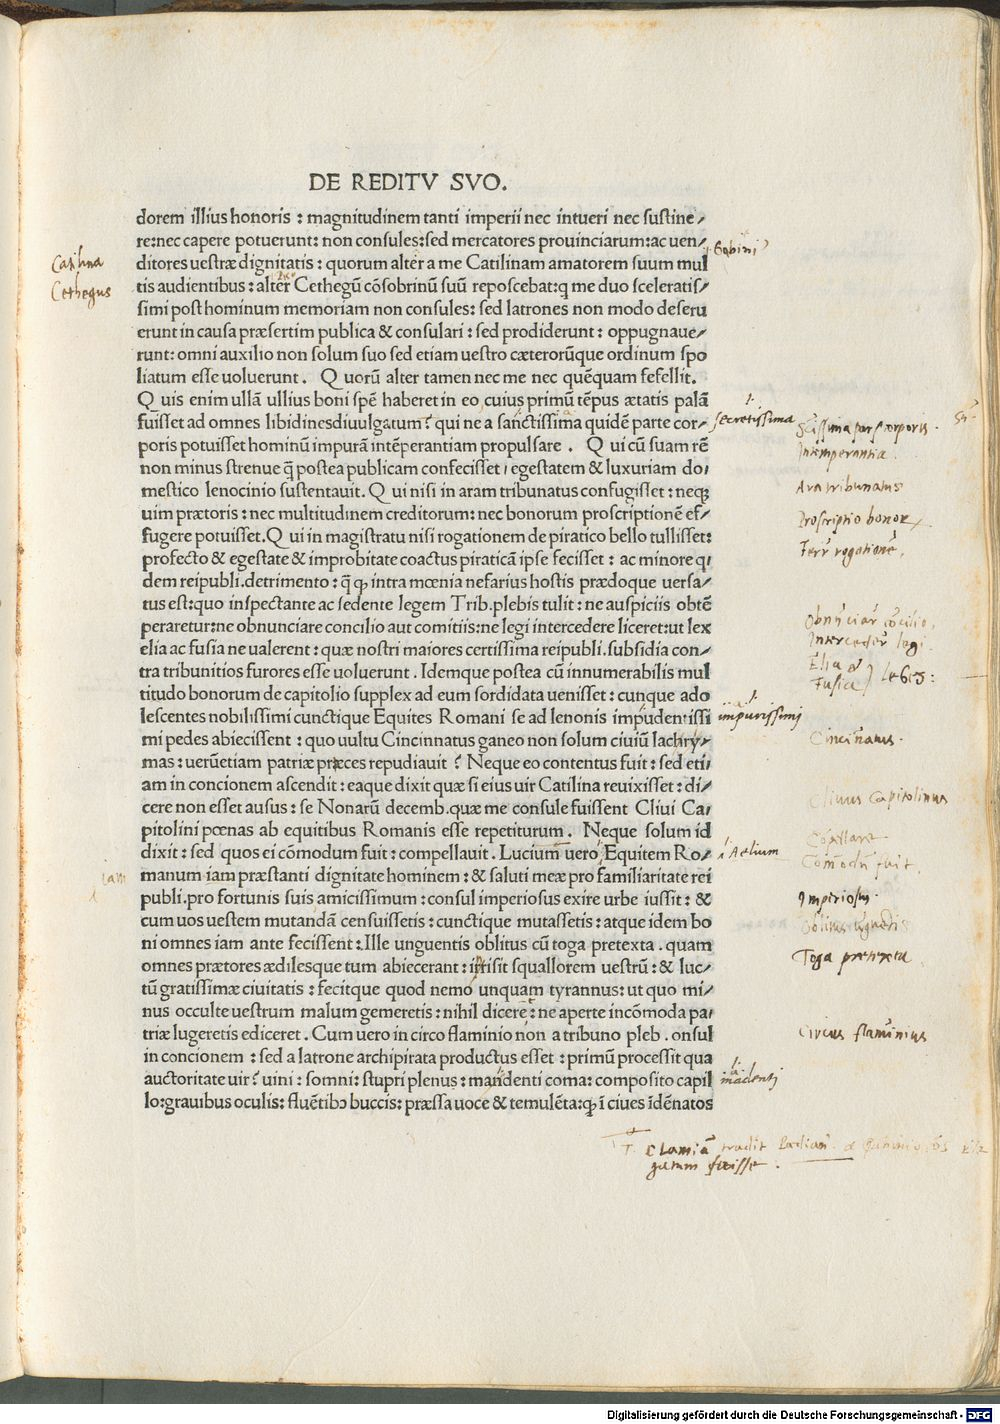 DE REDITV SVO.
dorem illius honoris : magnitudinem tanti imperii nec intueri nec sustine⸗
re:nec capere potuerunt: non consules:sed mercatores prouinciarum:ac uen⸗
ditores uestræ dignitatis : quorum alter a me Catilinam amatorem suum mul
tis audientibus : alter Cethegū cōsobrinū suū reposcebat:q me duo sceleratis⸗
simi post hominum memoriam non consules: sed latrones non modo deseru
erunt in causa præsertim publica & consulari : sed prodiderunt : oppugnaue⸗
runt: omni auxilio non solum suo sed etiam uestro cæterorūque ordinum spo
liatum esse uoluerunt . Q uorū alter tamen nec me nec quēquam fefellit.
Q uis enim ullā ullius boni spē haberet in eo cuius primū tēpus ætatis palā
fuisset ad omnes libidinesdiuulgatum? qui ne a sanctissima quidē parte cor⸗
poris potuisset hominū impurā intēperantiam propulsare . Q ui cū suam rē
non minus strenue q̄ postea publicam confecisset, egestatem & luxuriam do⸗
mestico lenocinio sustentauit. Q ui nisi in aram tribunatus confugisset : neqꝫ
uim prætoris : nec multitudinem creditorum: nec bonorum proscriptionē ef⸗
fugere potuisset. Q ui in magistratu nisi rogationem de piratico bello tullisset:
profecto & egestate & improbitate coactus piraticā ipse fecisset : ac minore q
dem reipubli.detrimento : q̄ ꝙ intra mœnia nefarius hostis prædoque uersa⸗
tus est:quo inspectante ac sedente legem Trib.plebis tulit : ne auspiciis obtē
peraretur:ne obnunciare concilio aut comitiis:ne legi intercedere liceret:ut lex
elia ac fusia ne ualerent : quæ nostri maiores certissima reipubli.subsidia con⸗
tra tribunitios furores esse uoluerunt . Idemque postea cū innumerabilis mul
titudo bonorum de capitolio supplex ad eum sordidata uenisset : cunque ado
lescentes nobilissimi cunctique Equites Romani se ad lenonis impudentissi
mi pedes abiecissent : quo uultu Cincinnatus ganeo non solum ciuiū lachry⸗
mas : uerūetiam patriæ præces repudiauit ? Neque eo contentus fuit : sed eti⸗
am in concionem ascendit : eaque dixit quæ si eius uir Catilina reuixisset : di⸗
cere non esset ausus : se Nonarū decemb.quæ me consule fuissent Cliui Ca⸗
pitolini pœnas ab equitibus Romanis esse repetiturum . Neque solum id
dixit : sed quos ei cōmodum fuit : compellauit . Lucium uero Equitem Ro⸗
manum iam præstanti dignitate hominem : & saluti meæ pro familiaritate rei
publi.pro fortunis suis amicissimum : consul imperiosus exire urbe iussit : &
cum uos uestem mutandā censuissetis : cunctique mutassetis : atque idem bo
ni omnes iam ante fecissent : Ille unguentis oblitus cū toga pretexta . quam
omnes prætores ædilesque tum abiecerant : irrisit squallorem uestrū : & luc⸗
tū gratissimæ ciuitatis : fecitque quod nemo unquam tyrannus: ut quo mi⸗
nus occulte uestrum malum gemeretis : nihil dicere : ne aperte incōmoda pa⸗
triæ lugeretis ediceret . Cum uero in circo flaminio non a tribuno pleb . onsul
in concionem : sed a latrone archipirata productus esset : primū processit qua
auctoritate uir? uini : somni : stupri plenus : mandenti coma: composito capil
lo:grauibus oculis: fluētibɔ buccis: præssa uoce & temulēta:ꝙ ī ciues īdēnatos
Catilina
Cethegus
iam
Gabini
secretissima
Intemperantia
Ara tribunatus
Proscriptio bonoꝝ
Ferr rogationē.
Elia &
Fusia
leges:
impurissimi
Cincīnatus.
Cliuus Capitolinus
Aelium
Cōmodū fuit.
Imperiosus.
Toga pretexta
Circus flaminius
madenti